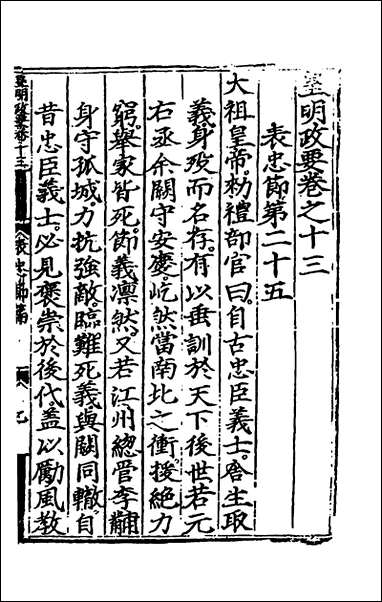 皇明政要卷之十三
表忠節第二十五
太祖皇帝。勑禮部官曰。自古忠臣義士。舍生取
義。身歿而名存。有以垂訓於天下後世。若元
右丞余闕守安慶。屹然當南北之衝。援絶力
窮。舉家皆死。節義凛然。又若江州緫管李黼
身守孤城。力抗強敵。臨難死義。與闕同轍。自
昔忠臣義士。必見褒崇於後代。盖以勵風教
皇明政要卷十三
表忠節篇